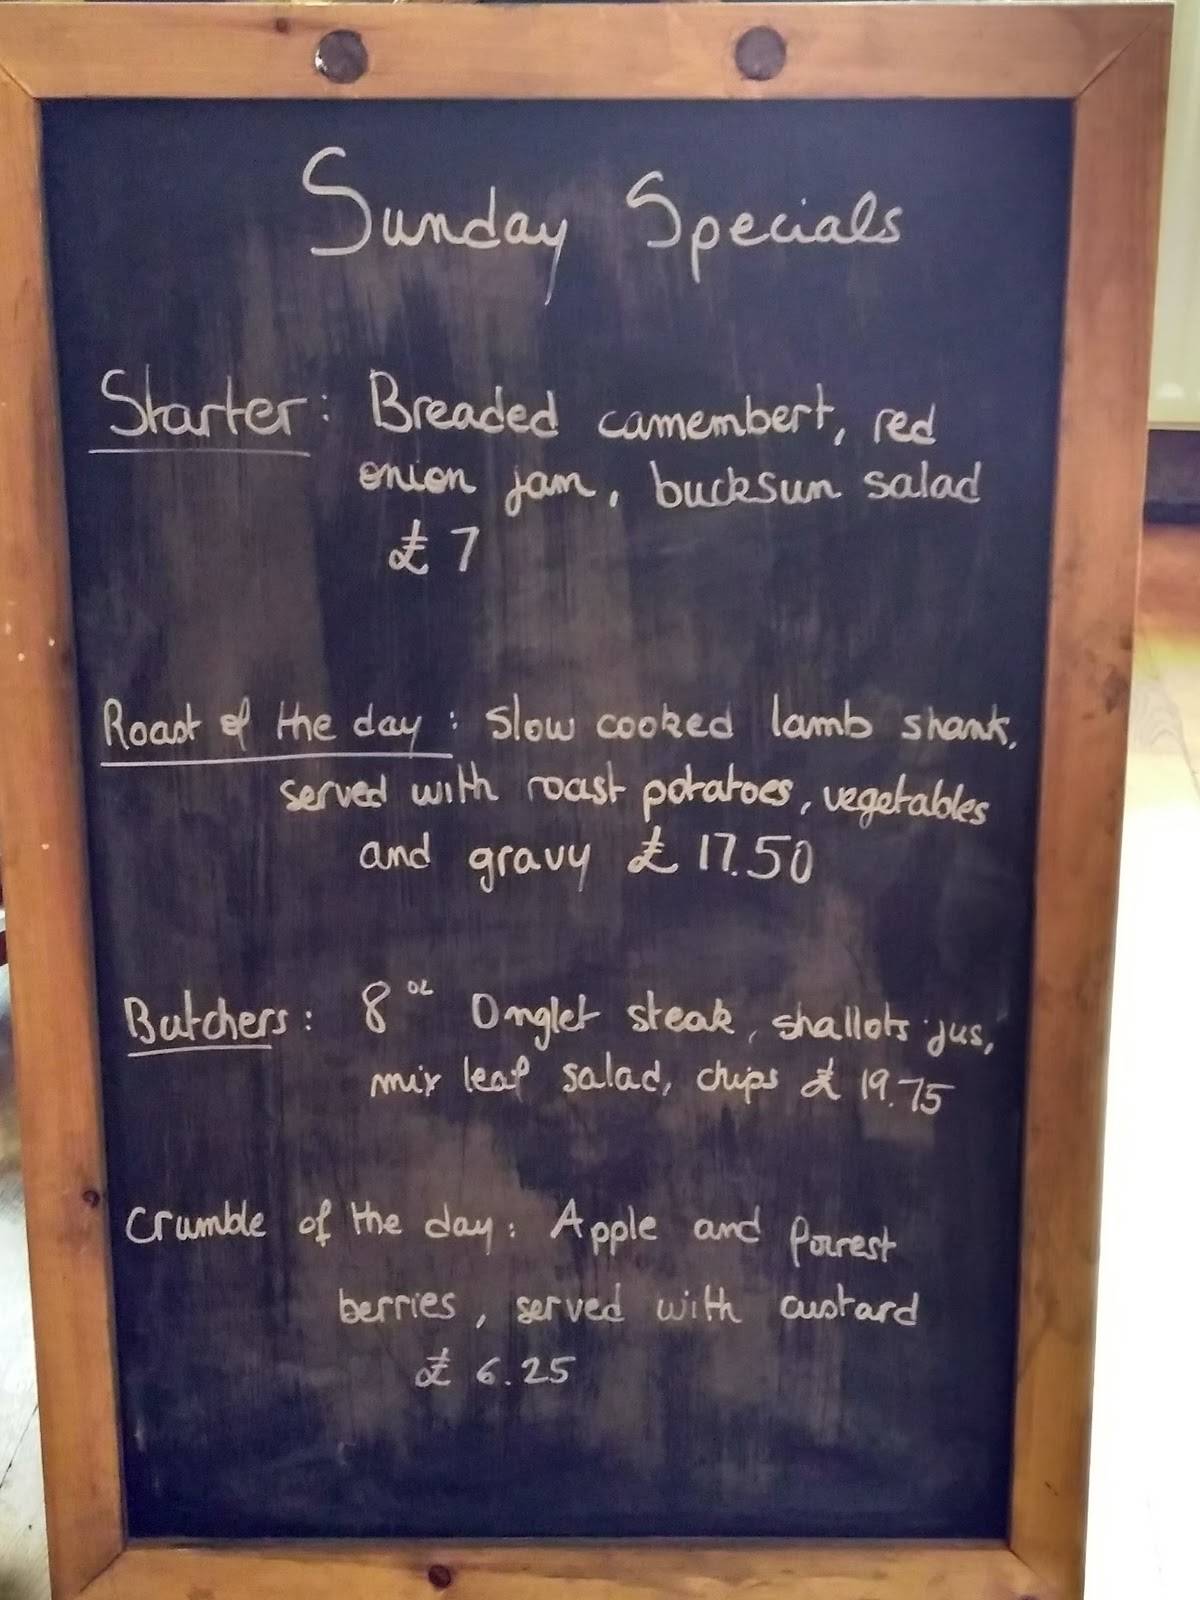 Sunday Specials
Starter: Breaded camembert, red
onion jam, bucksun salad
£7
Roast of the day: Slow cooked lamb shank,
served with roast potatoes, vegetables
and gravy £17.50
Butchers: 8oz Onglet steak, shallots jus,
mix leaf salad, chips £19.75
Crumble of the day: Apple and forrest
berries, served with custard
£6.25